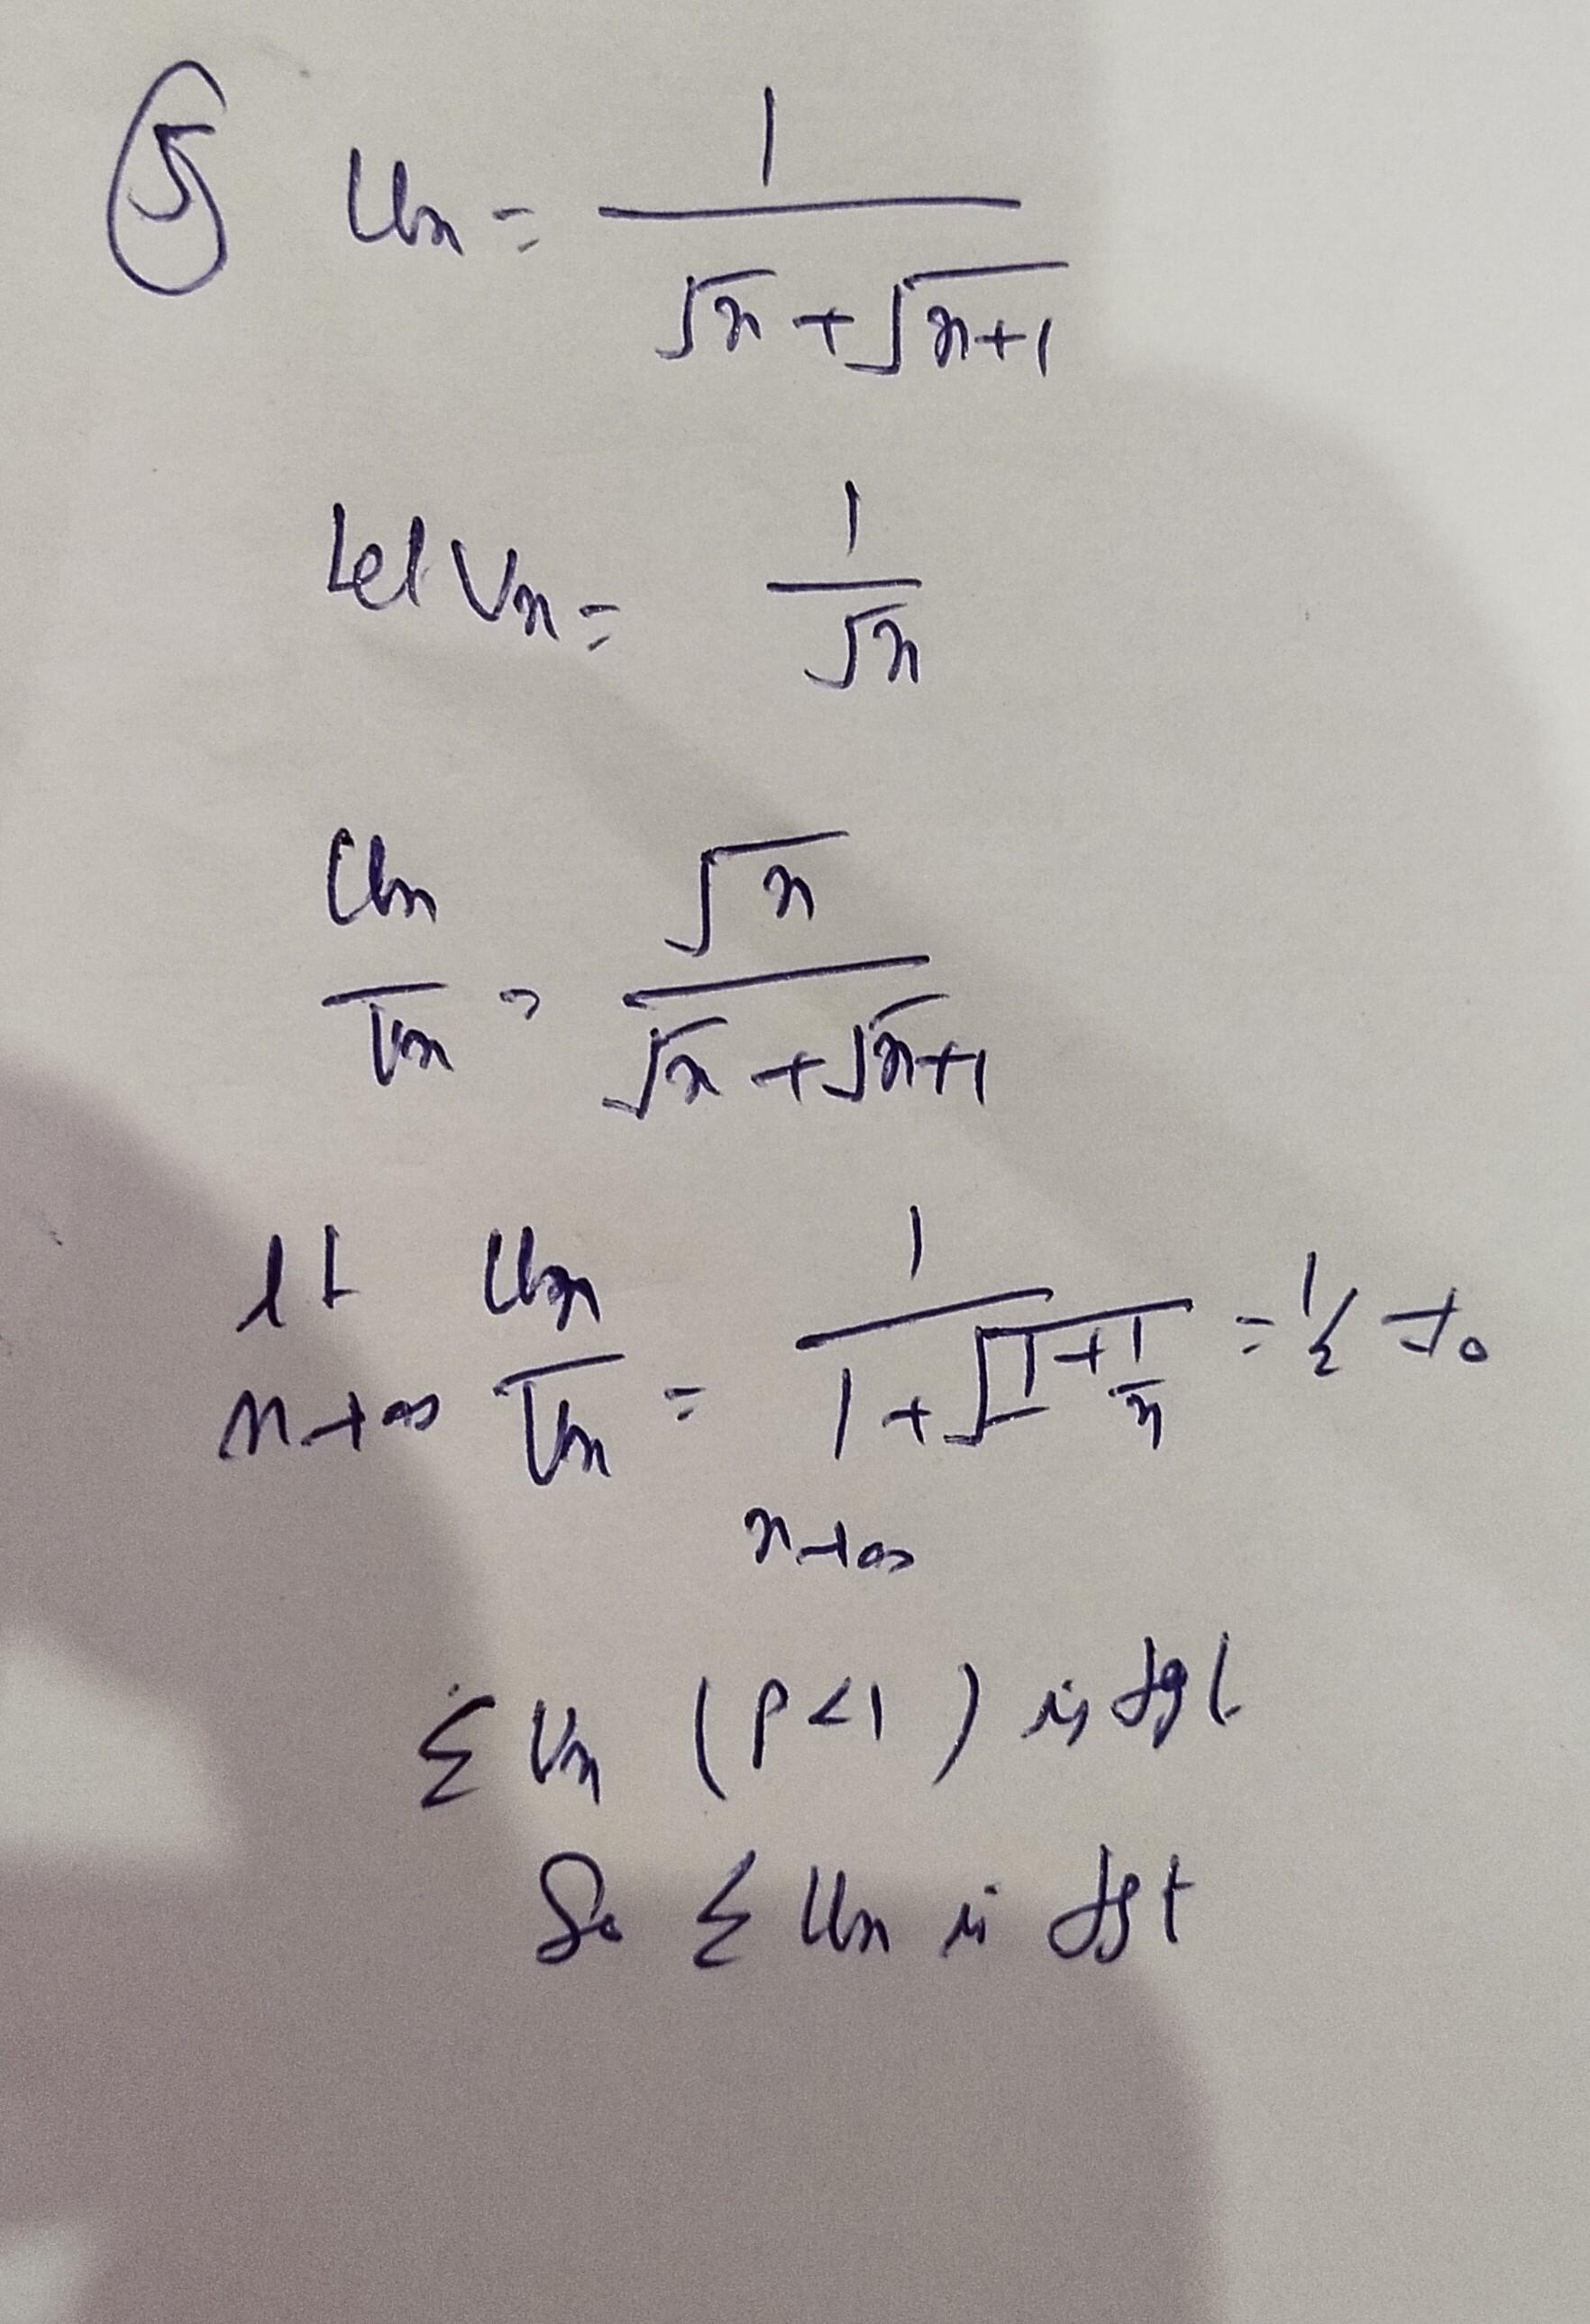 ⑤ Un = 1/(√n + √n+1)
Let Vn = 1/√n
Un/Vn = √n/(√n + √n+1)
lt n→∞ Un/Vn = 1/(1+√1+1/n) = 1/2 ≠ 0
n→∞
Σ Vn (P<1) is dgt
So Σ Un is dgt